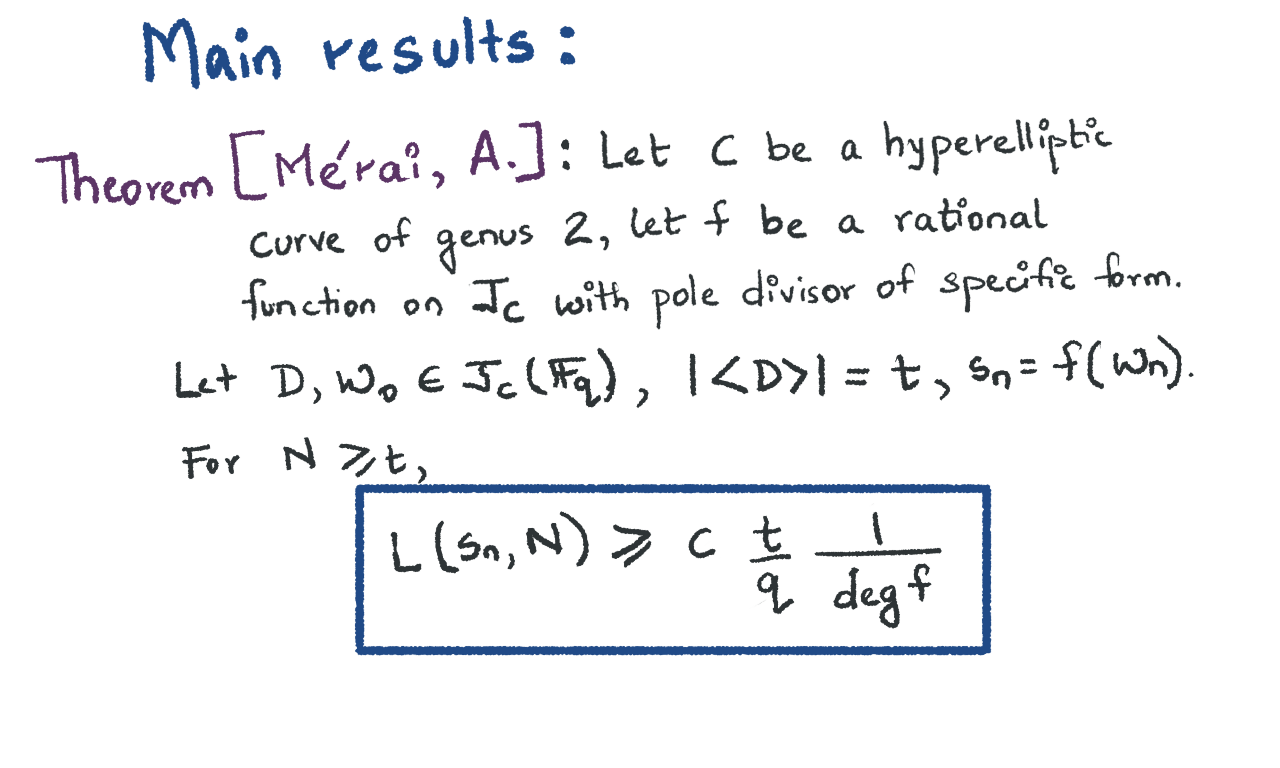 Main results:
Theorem [Mérai, A.]: Let C be a hyperelliptic
curve of genus 2, let f be a rational
function on J_C with pole divisor of specific form.
Let D, W_0 ∈ J_C(𝔽_q), |<D>| = t, s_n = f(W_n).
For N ⩾ t,
L(s_n, N) ⩾ c \frac{t}{q} \frac{1}{deg f}